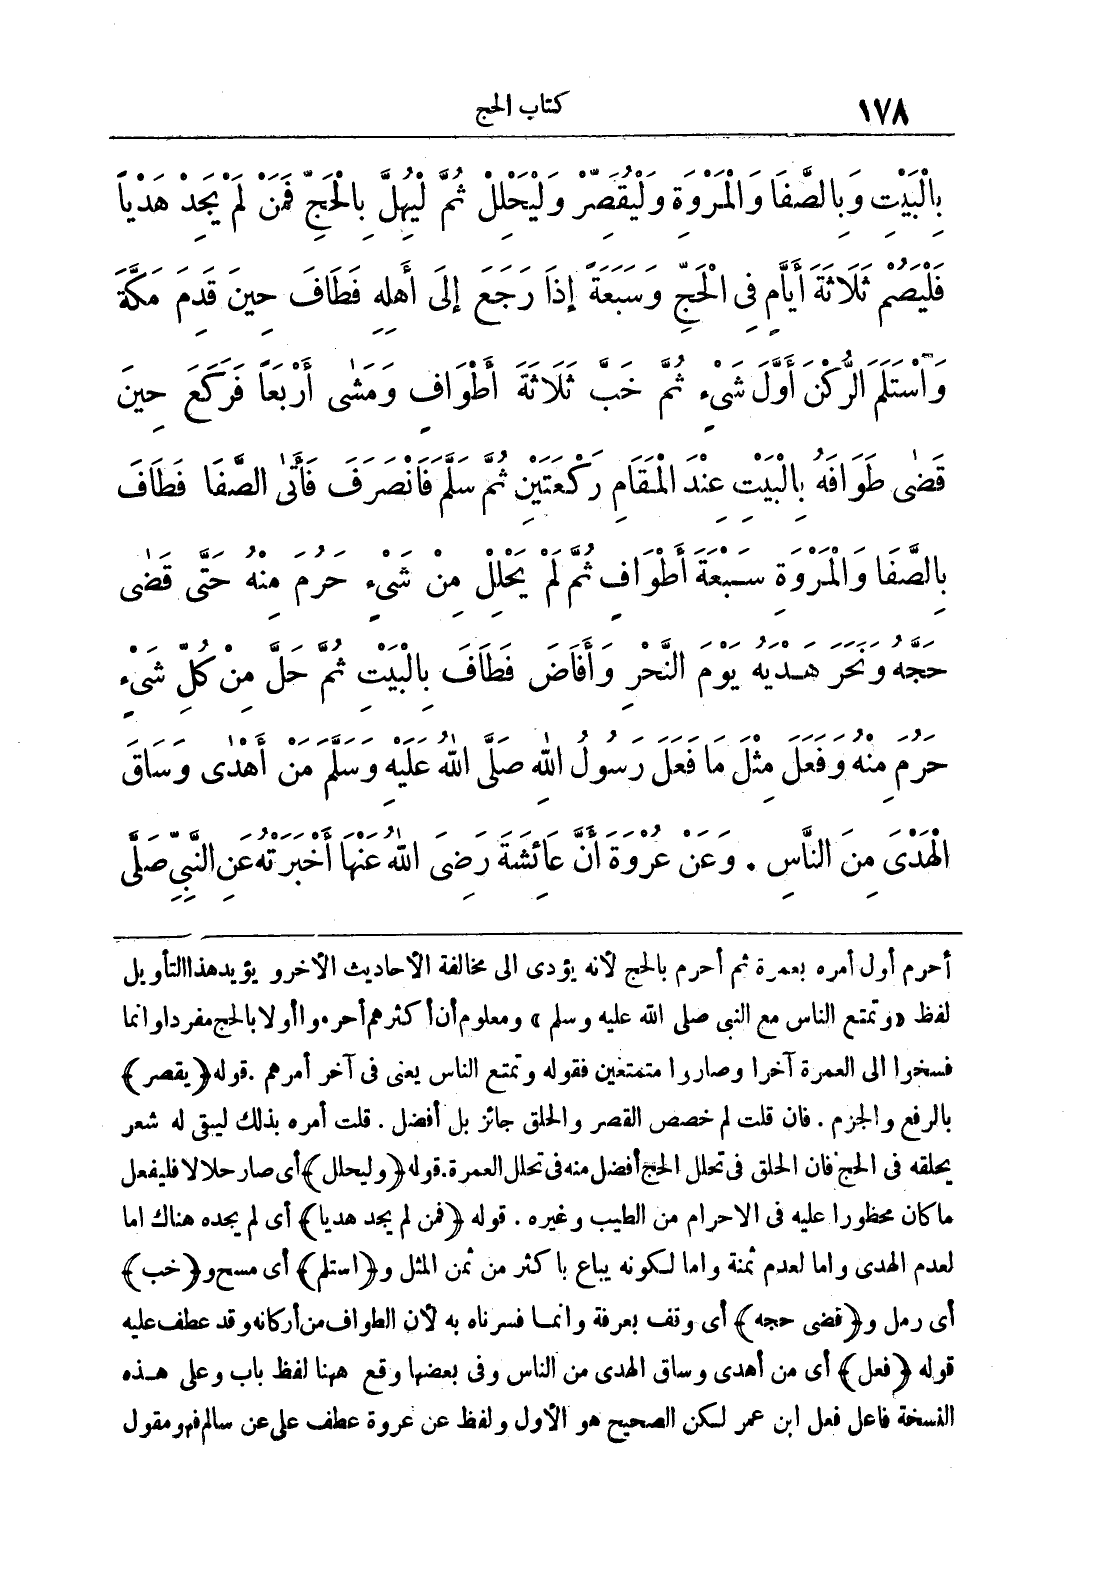 ١٧٨ كتاب الحج
بِالْبَيْتِ وَبِالصَّفَا وَالْمَرْوَةِ وَلْيُقَصِّرْ وَلْيَحْلِلْ ثُمَّ لْيُهِلَّ بِالْحَجِّ فَمَنْ لَمْ يَجِدْ هَدْياً
فَلْيَصُمْ ثَلَاثَةَ أَيَّامٍ فِى الْحَجِّ وَسَبْعَةً إِذَا رَجَعَ إِلَى أَهْلِهِ فَطَافَ حِينَ قَدِمَ مَكَّةَ
وَاسْتَلَمَ الرُّكْنَ أَوَّلَ شَىْءٍ ثُمَّ خَبَّ ثَلَاثَةَ أَطْوَافٍ وَمَشَى أَرْبَعاً فَرَكَعَ حِينَ
قَضَى طَوَافَهُ بِالْبَيْتِ عِنْدَ الْمَقَامِ رَكْعَتَيْنِ ثُمَّ سَلَّمَ فَانْصَرَفَ فَأَتَى الصَّفَا فَطَافَ
بِالصَّفَا وَالْمَرْوَةِ سَبْعَةَ أَطْوَافٍ ثُمَّ لَمْ يَحْلِلْ مِنْ شَىْءٍ حَرُمَ مِنْهُ حَتَّى قَضَى
حَجَّهُ وَنَحَرَ هَدْيَهُ يَوْمَ النَّحْرِ وَأَفَاضَ فَطَافَ بِالْبَيْتِ ثُمَّ حَلَّ مِنْ كُلِّ شَىْءٍ
حَرُمَ مِنْهُ وَفَعَلَ مِثْلَ مَا فَعَلَ رَسُولُ اللهِ صَلَّى اللهُ عَلَيْهِ وَسَلَّمَ مَنْ أَهْدَى وَسَاقَ
الْهَدْىَ مِنَ النَّاسِ . وَعَنْ عُرْوَةَ أَنَّ عَائِشَةَ رَضِىَ اللهُ عَنْهَا أَخْبَرَتْهُ عَنِ النَّبِىِّ صَلَّى
أحرم أول أمره بعمرة ثم أحرم بالحج لأنه يؤدى الى مخالفة الأحاديث الأخر و يؤيد هذا التأويل
لفظ «وتمتع الناس مع النبى صلى الله عليه وسلم» ومعلوم أن أكثرهم أحرموا أولا بالحج مفردا وانما
فسخوا الى العمرة آخرا وصاروا متمتعين فقوله وتمتع الناس يعنى فى آخر أمرهم . قوله ﴿يقصر﴾
بالرفع والجزم . فان قلت لم خصص القصر والحلق جائز بل أفضل . قلت أمره بذلك ليبقى له شعر
يحلقه فى الحج فان الحلق فى تحلل الحج أفضل منه فى تحلل العمرة . قوله ﴿وليحلل﴾ أى صار حلالا فليفعل
ماكان محظورا عليه فى الاحرام من الطيب وغيره . قوله ﴿فمن لم يجد هديا﴾ أى لم يجده هناك اما
لعدم الهدى واما لعدم ثمنة واما لكونه يباع باكثر من ثمن المثل و﴿استلم﴾ أى مسح و﴿خب﴾
أى رمل و﴿قضى حجه﴾ أى وقف بعرفة وانما فسرناه به لأن الطواف من أركانه وقد عطف عليه
قوله ﴿فعل﴾ أى من أهدى وساق الهدى من الناس وفى بعضها وقع ههنا لفظ باب وعلى هذه
النسخة فاعل فعل ابن عمر لكن الصحيح هو الأول ولفظ عن عروة عطف على عن سالم فهو مقول